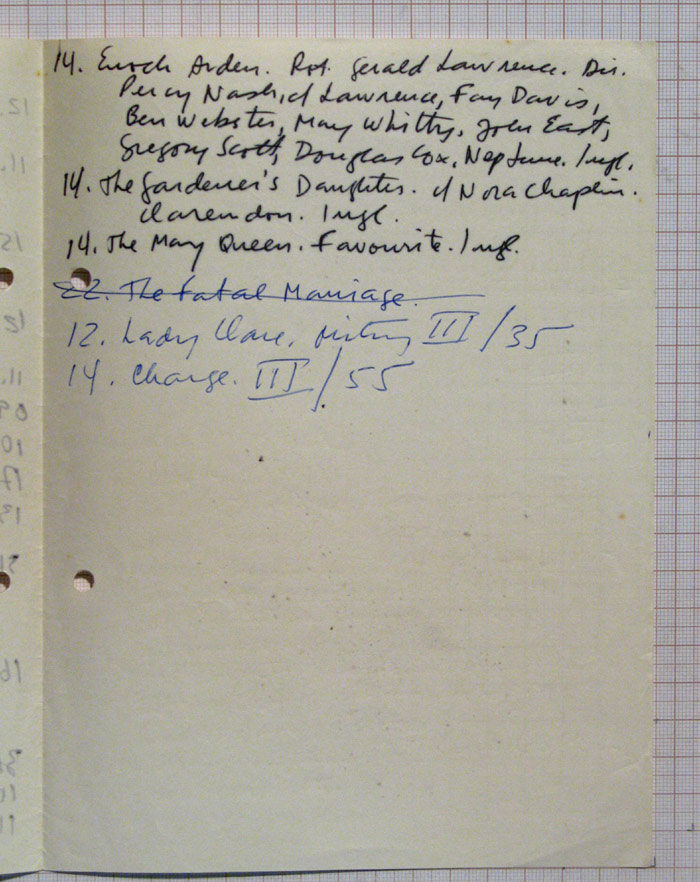 14. Enoch Arden. Rot. Gerald Lawrence. Dir.
Percy Nash, c/ Lawrence, Fay Davis,
Ben Webster, May Whitty, John East,
Gregory Scott, Douglas Cox, Neptune. Ingl.
14. The Gardener's Daughter. c/ Nora Chaplin.
Clarendon. Ingl.
14. The May Queen. Favourite. Ingl.
22. The Fatal Marriage.
12. Lady Clare, III/35
14. Charge. III/55
12.
11.